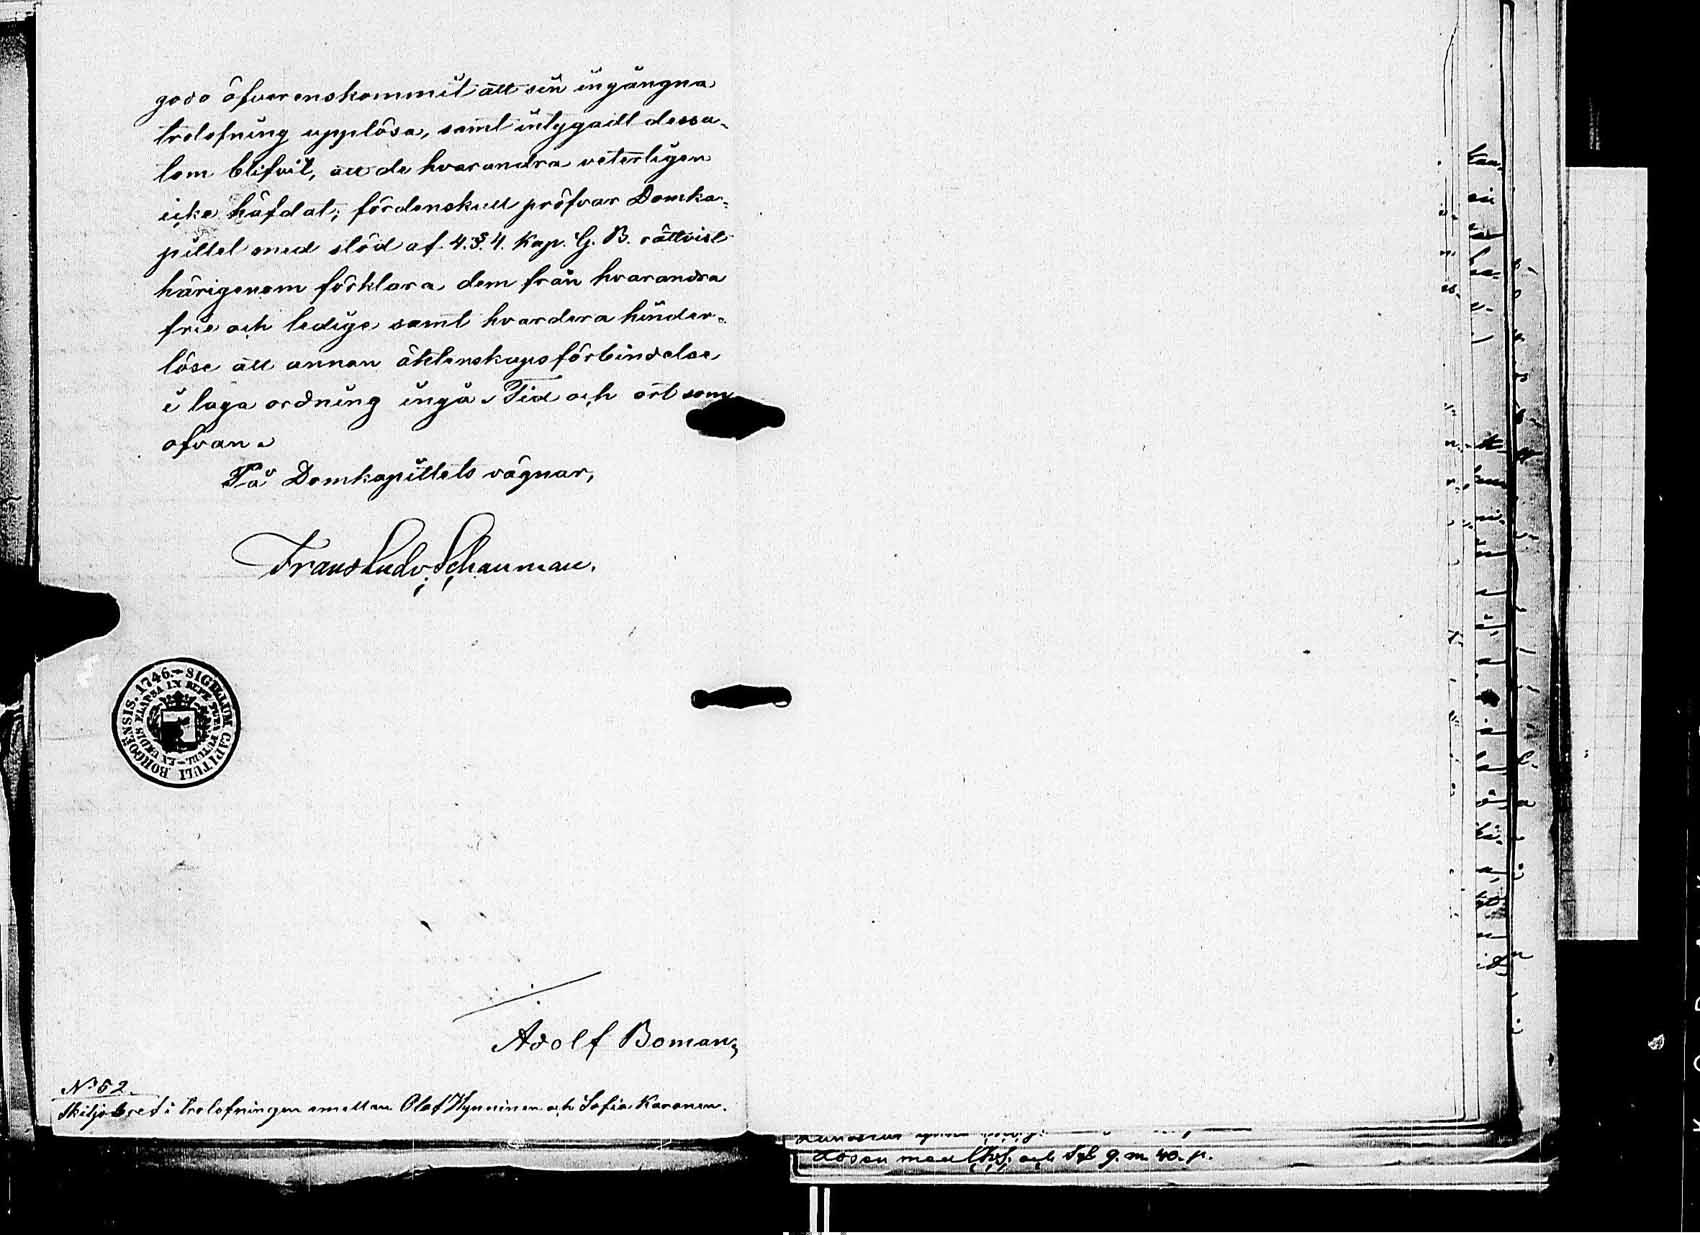 godo öfverenskommit att sin ingångna
trolofning upplösa, samt intygadt dessu-
tom blifvit, att de hvarandra veterligen
icke häfdat; fördenskull pröfvar Domka-
pitlet med stöd af 4.§.4. Kap. G. B. rättvist
härigenom förklara dem från hvarandra
frie och ledige samt hvardera hinder-
löse att annan äktenskapsförbindelse
i laga ordning ingå. Tid och ort som
ofvan.
På Domkapitlets vägnar,
Frans Ludv. Schauman.
SIGILLUM CAPITULI BORGOENSIS. 1746.
Adolf Boman,
No 52.
Skiljobref i trolofningen emellan Olof Hynninen och Sofia Karonen.
med och 9. m 40. p.